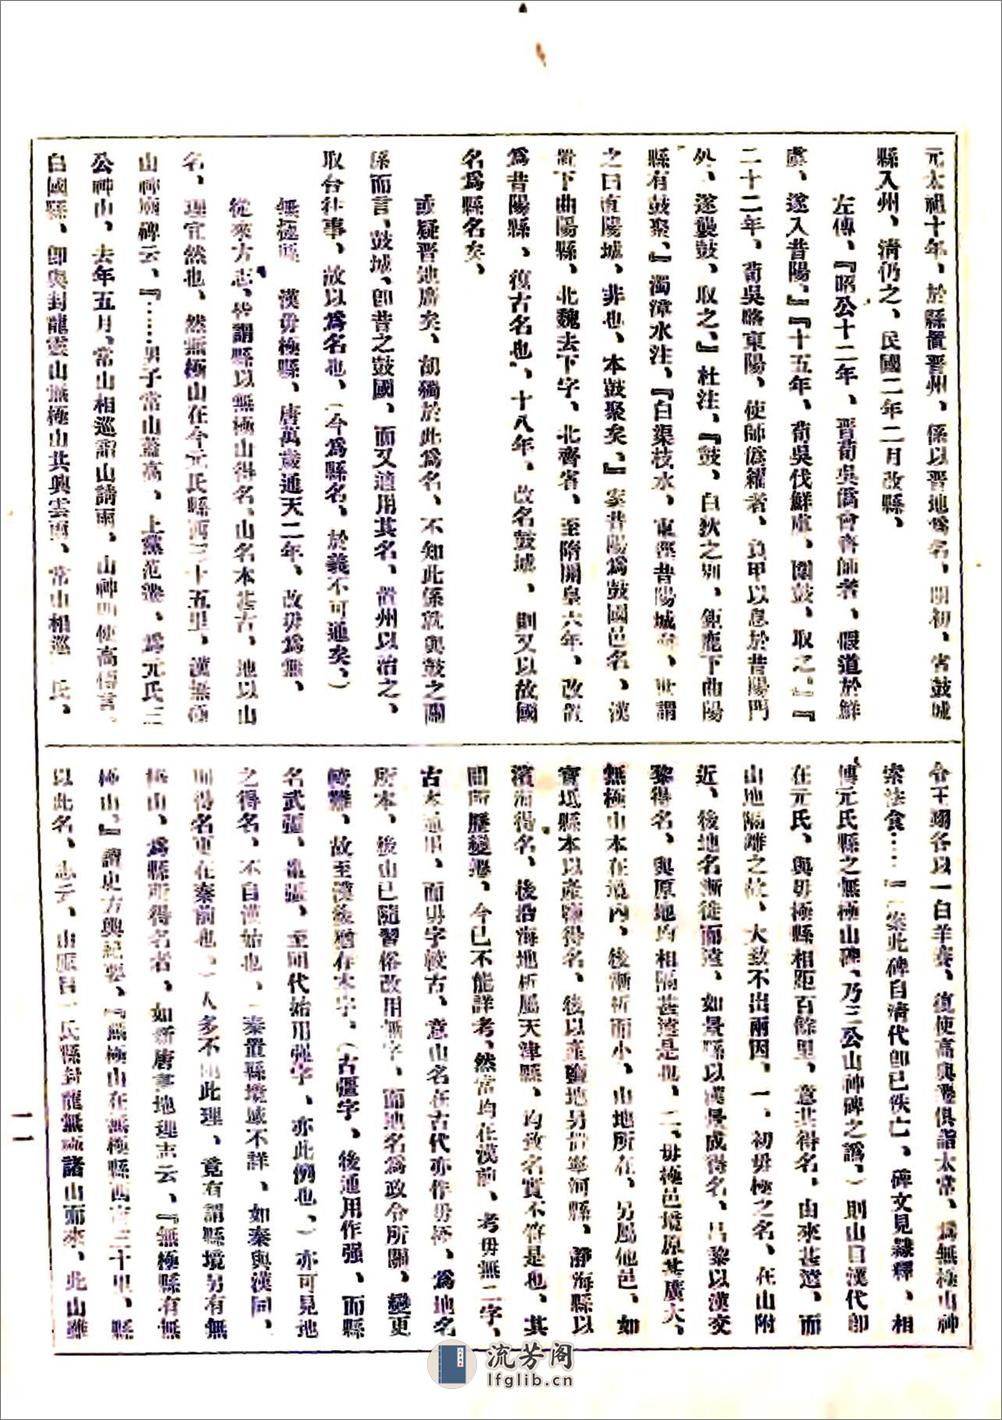 元太祖十年、於縣置晉州、係以晉地爲名、明初、省鼓城
縣入州、淸仍之、民國二年二月改縣、
左傳、『昭公十二年、晉荀吳僞會齊師者、假道於鮮
虞、遂入昔陽、』『十五年、荀吳伐鮮虞、圍鼓、取之、』『
二十二年、荀吳略東陽、使師僞糴者、負甲以息於昔陽門
外、遂襲鼓、取之、』杜注、『鼓、白狄之別、鉅鹿下曲陽
縣有鼓聚、』濁漳水注、『白渠枝水、東徑昔陽城南、世謂
之曰直陽城、非也、本鼓聚矣、』案昔陽爲鼓國邑名、漢
置下曲陽縣、北魏去下字、北齊省、至隋開皇六年、改置
爲昔陽縣、復古名也、十八年、改名鼓城、則又以故國
名爲縣名矣、
或疑晉地廣矣、胡獨於此爲名、不知此係就與鼓之關
係而言、鼓城、卽昔之鼓國、而又適用其名、置州以治之、
取合往事、故以爲名也、（今爲縣名、於義不可通矣、）
無極縣 漢毋極縣、唐萬歲通天二年、改毋爲無、
從來方志、皆謂縣以無極山得名、山名本甚古、地以山
名、理宜然也、然無極山在今元氏縣西三十五里、漢無極
山神廟碑云、『……男子常山蓋高、上黨范遷、爲元氏三
公神山、去年五月、常山相巡詣山請雨、山神卽使高傳言、
白國縣、卽與封龍靈山無極山共興雲雨、常山相巡 氏、
令王翊各以一白羊賽、復使高與遷俱詣太常、爲無極山神
索法食……』（案此碑自淸代卽已佚亡、碑文見隸釋、相
傳元氏縣之無極山碑、乃三公山神碑之譌、）則山自漢代卽
在元氏、與毋極縣相距百餘里、意其得名、由來甚遠、而
山地隔離之故、大致不出兩因、一、初毋極之名、在山附
近、後地名漸徙而遠、如景縣以漢景成得名、昌黎以漢交
黎得名、與原地均相隔甚遠是也、二、毋極邑境原甚廣大、
無極山本在境內、後漸析而小、山地所在、另屬他邑、如
寶坻縣本以產鹽得名、後以產鹽地另置寧河縣、靜海縣以
濱海得名、後沿海地析屬天津縣、均致名實不符是也、其
間所歷變遷、今已不能詳考、然當均在漢前、考毋無二字、
古本通用、而毋字較古、意山名在古代亦作毋極、爲地名
所本、後山已隨習俗改用無字、而地名爲政令所關、變更
較難、故至漢後猶存本字、（古彊字、後通用作强、而縣
名武彊、 彊、至明代始用强字、亦此例也、）亦可見地
之得名、不自漢始也、（秦置縣境域不詳、如秦與漢同、
則得名更在秦前也、）人多不 此理、竟有謂縣境另有無
極山、爲縣所得名者、如新唐書地理志云、『無極縣有無
極山、』讀史方輿紀要、『無極山在無極縣西南三十里、縣
以此名、志云、山脈自 氏縣封龍無極諸山而來、此山雖
一一
流芳阁
lfglib.cn